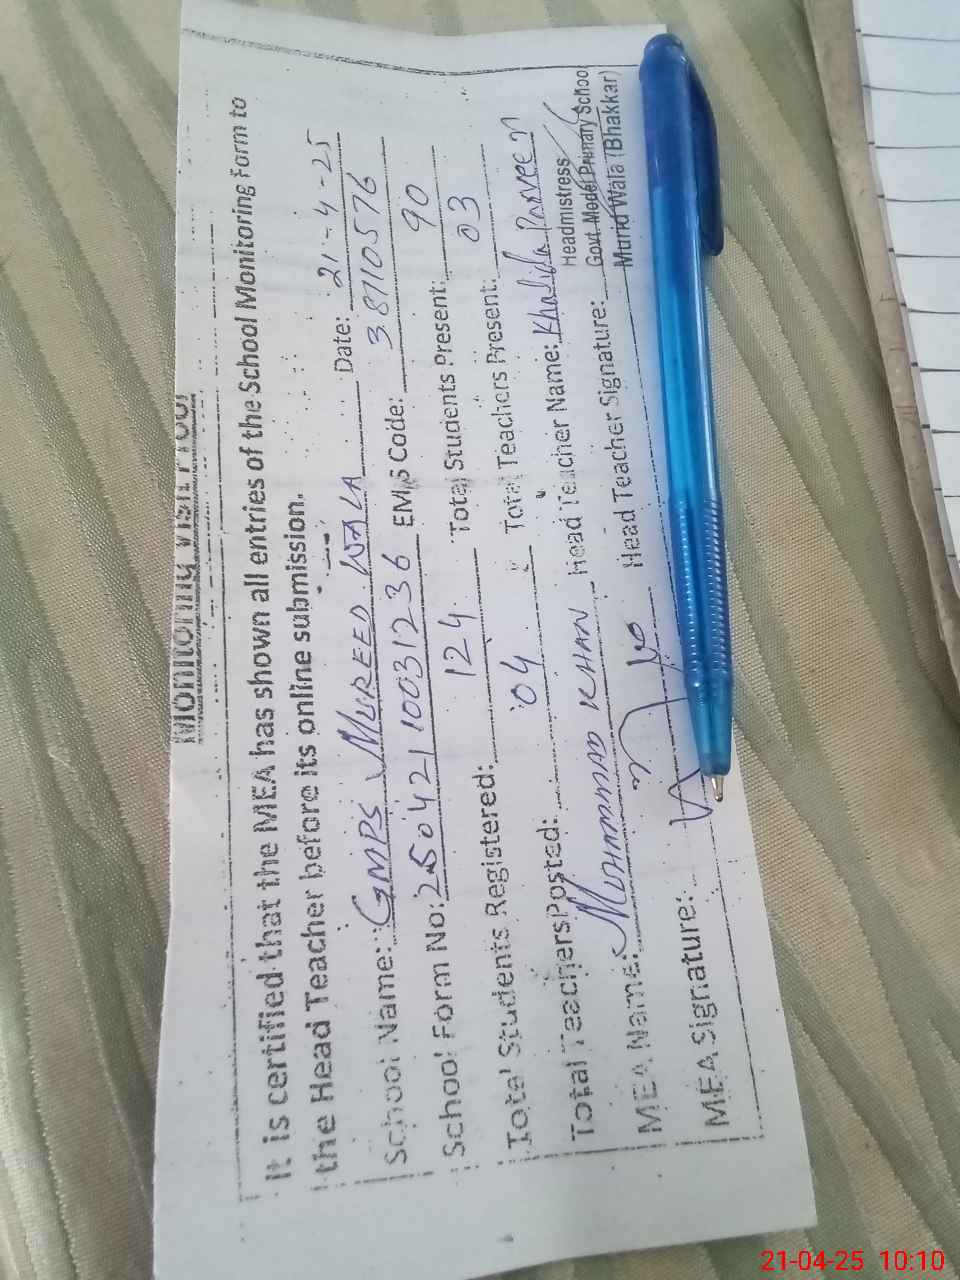 Monitoring Visit Proof
It is certified that the MEA has shown all entries of the School Monitoring Form to
the Head Teacher before its online submission.
School Name: GMPS MUREED WALA Date: 21-4-25
School Form No: 25042110031236 EMIS Code: 38710576
Total Students Registered: 124 Total Students Present: 90
Total Teachers Posted: 04 Total Teachers Present: 03
MEA Name: MUHAMMAD KHAN Head Teacher Name: Khalida Parveen
MEA Signature: Head Teacher Signature:
Headmistress
Govt. Model Primary School
Murid Wala (Bhakkar)
21-04-25 10:10